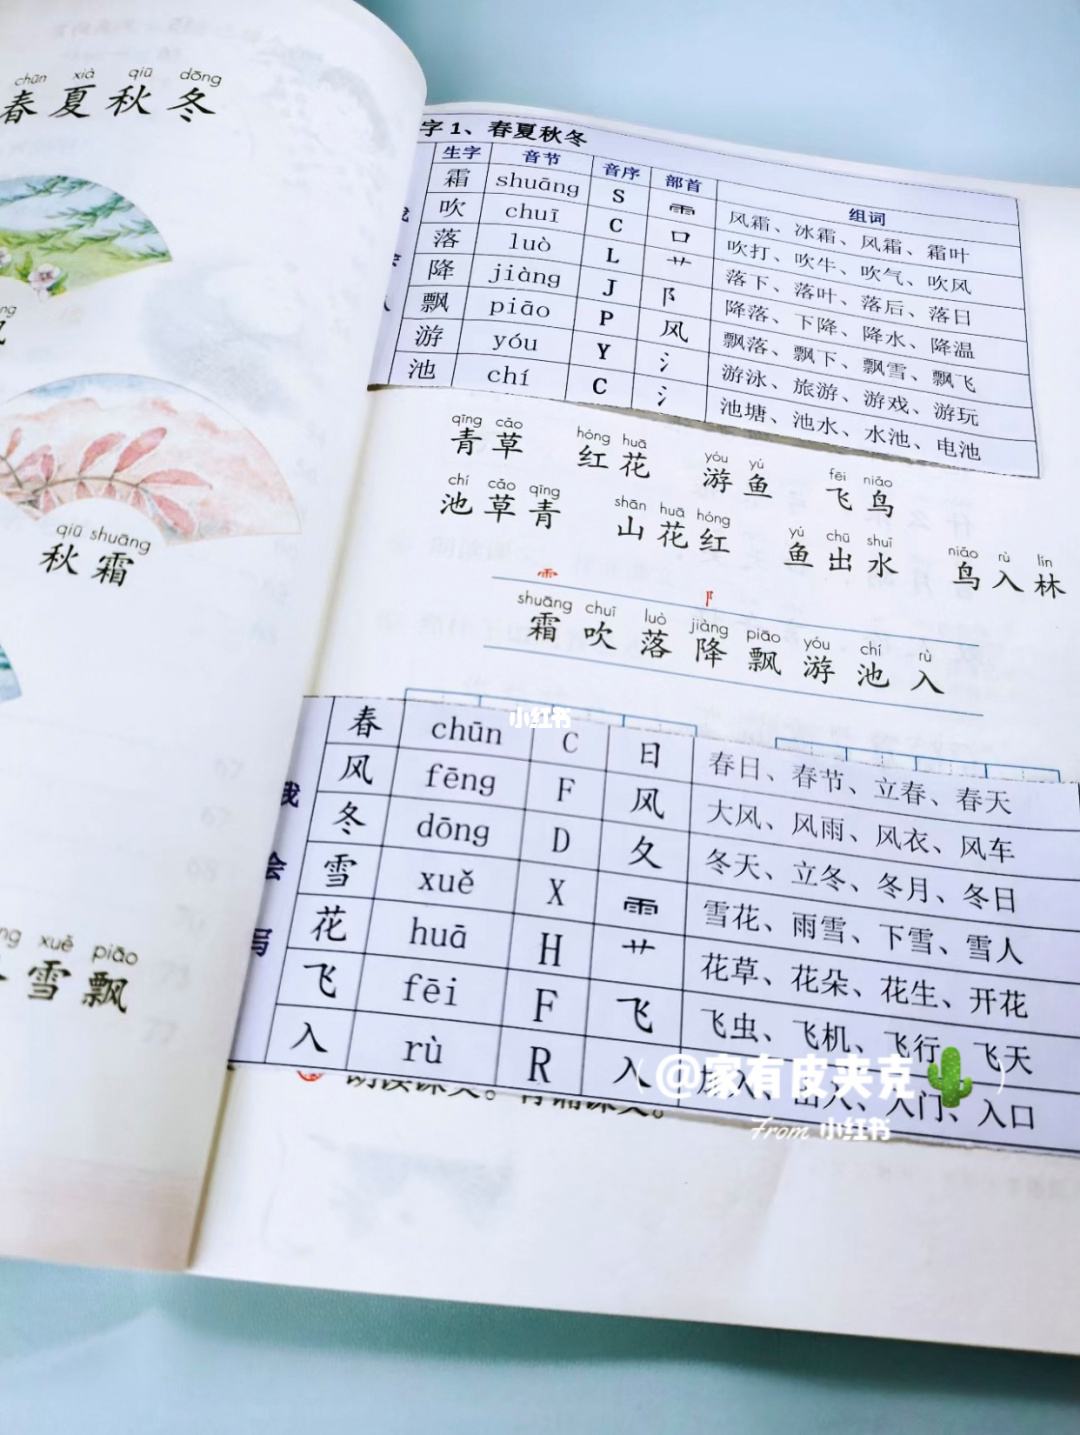 chūn xià qiū dōng
春夏秋冬
qiū shuāng
秋霜
xuě piāo
雪飘
字1、春夏秋冬
生字 音节 音序 部首 组词
霜 shuāng S ⻗ 风霜、冰霜、风霜、霜叶
吹 chuī C 口 吹打、吹牛、吹气、吹风
落 luò L 艹 落下、落叶、落后、落日
降 jiàng J 阝 降落、下降、降水、降温
飘 piāo P 风 飘落、飘下、飘雪、飘飞
游 yóu Y 氵 游泳、旅游、游戏、游玩
池 chí C 氵 池塘、池水、水池、电池
qīng cǎo hóng huā yóu yú fēi niǎo
青草 红花 游鱼 飞鸟
chí cǎo qīng shān huā hóng yú chū shuǐ niǎo rù lín
池草青 山花红 鱼出水 鸟入林
⻗ 阝
shuāng chuī luò jiàng piāo yóu chí rù
霜吹落降飘游池入
小红书
我会写
春 chūn C 日 春日、春节、立春、春天
风 fēng F 风 大风、风雨、风衣、风车
冬 dōng D 夂 冬天、立冬、冬月、冬日
雪 xuě X ⻗ 雪花、雨雪、下雪、雪人
花 huā H 艹 花草、花朵、花生、开花
飞 fēi F 飞 飞虫、飞机、飞行、飞天
入 rù R 入 入、出入、入门、入口
@家有皮夹克
朗读课文。背诵课文。
From 小红书